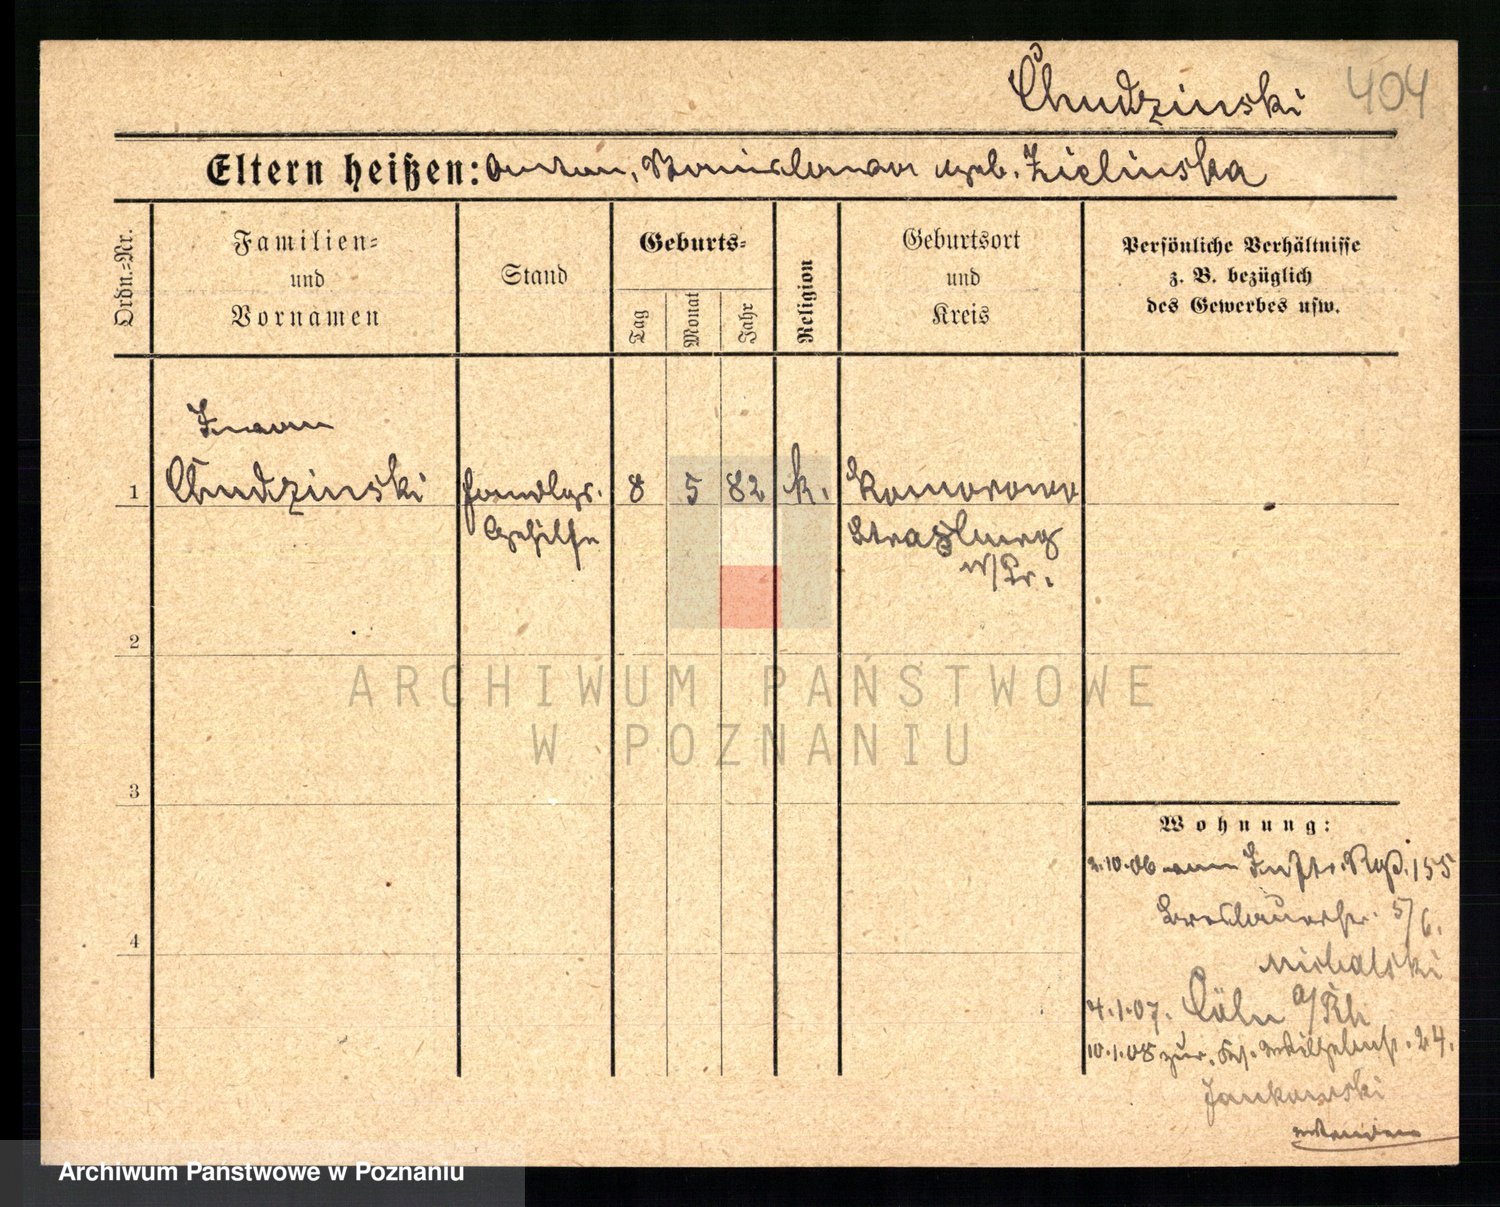 Chudzinski 404
Eltern heißen: Anton, Stanislawa geb. Zielinska
Ordn.=Nr.
Familien=
und
Vornamen
Stand
Geburts=
Tag
Monat
Jahr
Religion
Geburtsort
und
Kreis
Persönliche Verhältnisse
z. B. bezüglich
des Gewerbes usw.
1 Chudzinski Handlgs. 8 5 82 k. Komorowo
Gehilfe Strasburg
W/Pr.
2
3
4
ARCHIWUM PAŃSTWOWE
W POZNANIU
Wohnung:
2.10.06 Inftr. Rgt. 155
Breslauerstr. 5/6.
Michalski
4.1.07. Cöln a/Rh
10.1.08 zur. Wilhelmstr. 24.
Jankowski
Archiwum Państwowe w Poznaniu